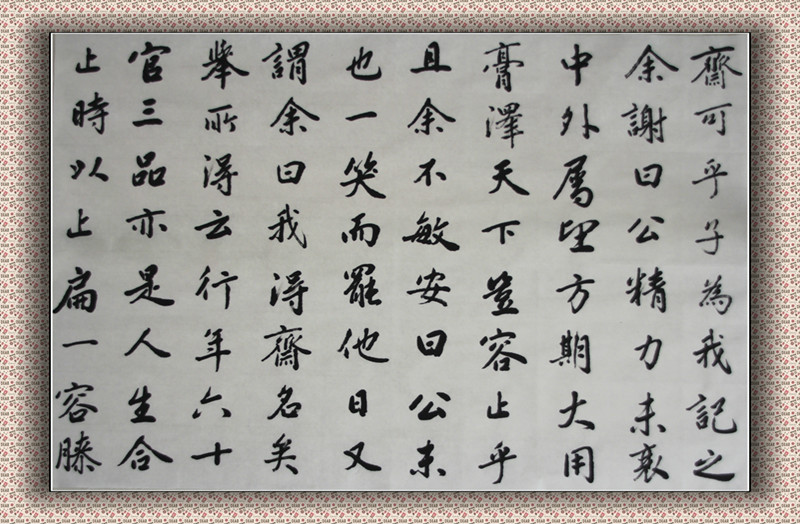 齋可乎子為我記之
余謝曰公精力未衰
中外属望方期大用
膏澤天下豈容止乎
且余不敏安曰公未
也一笑而罷他日又
謂余曰我得齋名矣
舉所得云行年六十
官三品亦是人生合
止時以止扁一容膝